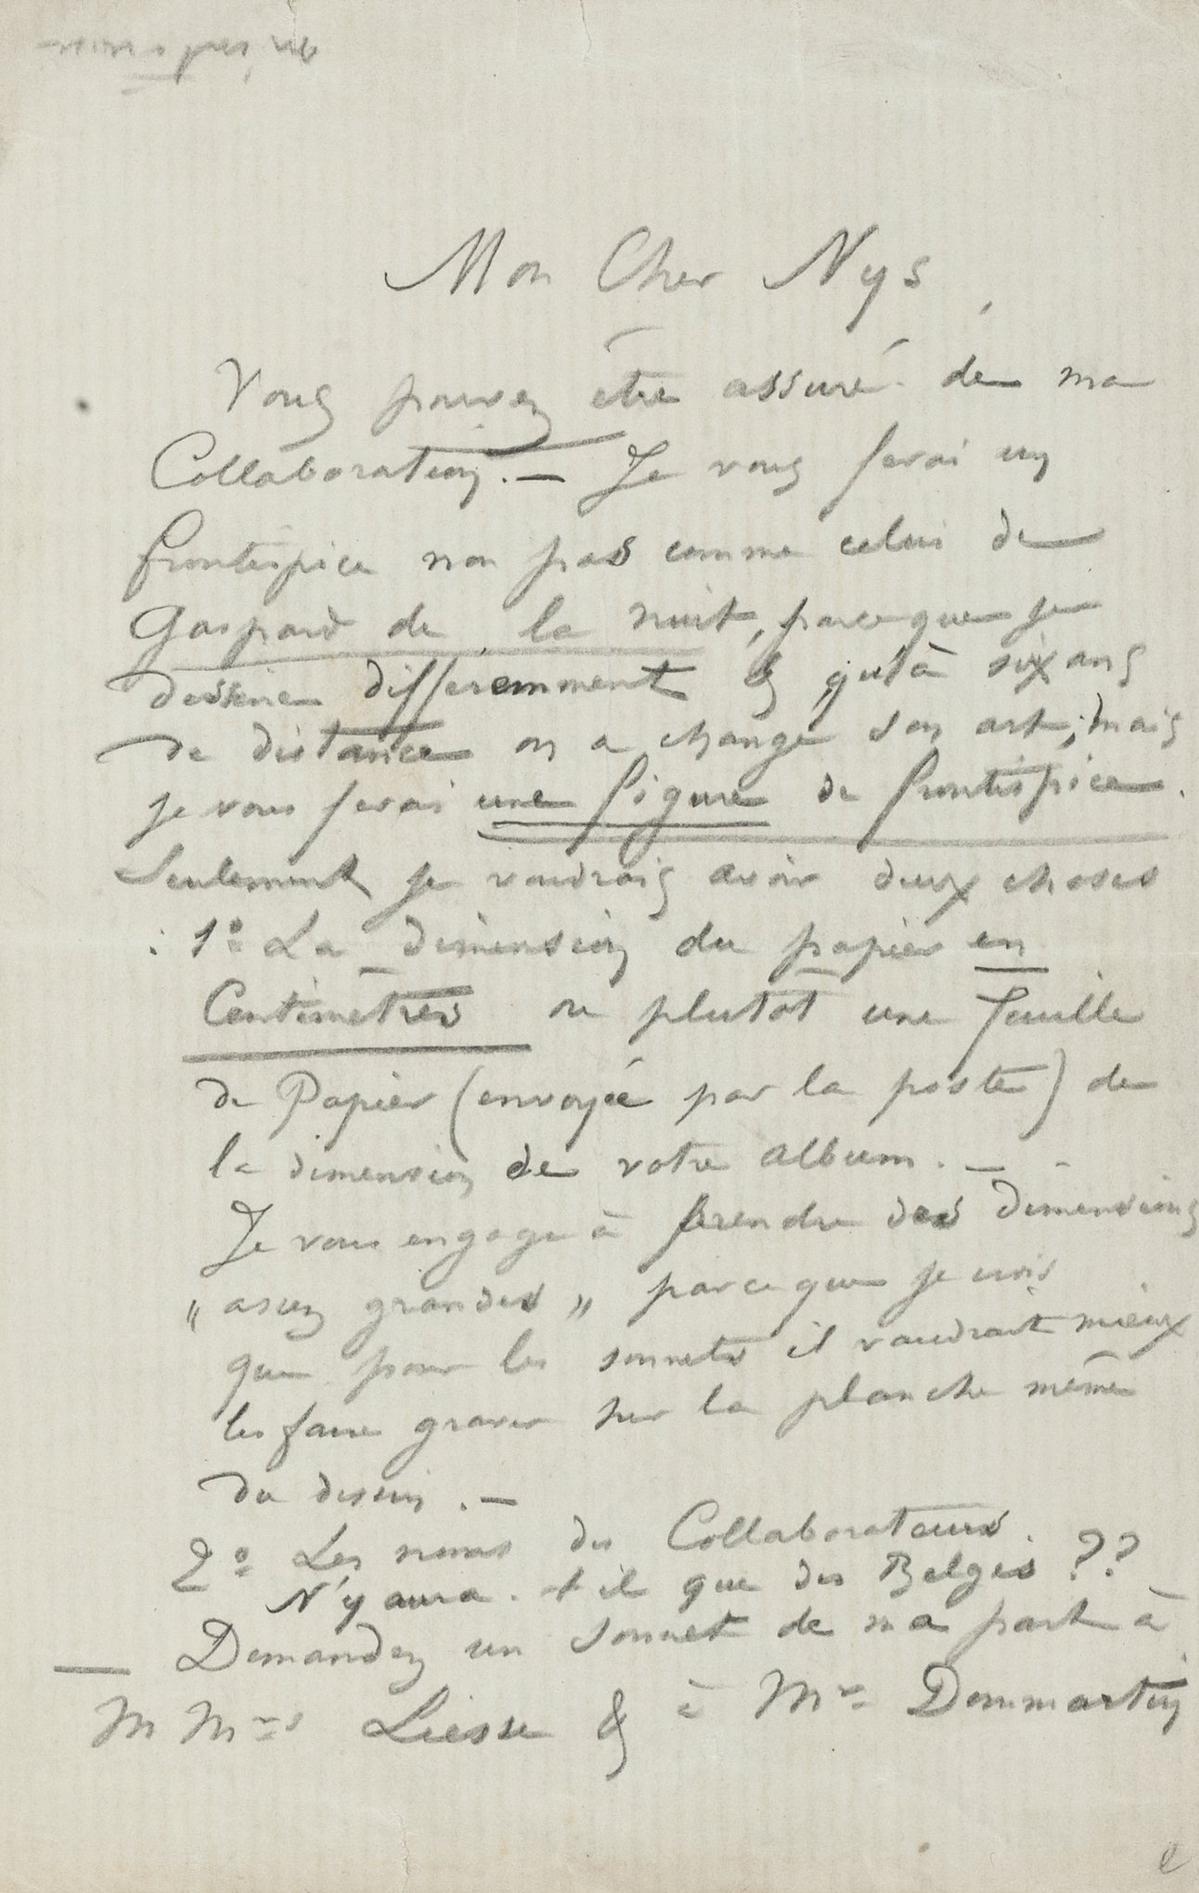 Mon Cher Nys,
Vous pouvez être assuré de ma
Collaboration. — Je vous ferai un
frontispice non pas comme celui de
Gaspard de la nuit, parceque je
dessine différemment & qu'à six ans
de distance on a changé son art; mais
je vous ferai une figure de frontispice.
Seulement je voudrais avoir deux choses
: 1º La dimension du papier en
Centimètres ou plutôt une feuille
de Papier (envoyée par la poste) de
la dimension de votre album. — -
Je vous engage à prendre des dimensions
„ assez grandes „ parceque je crois
que pour les sonnets il vaudrait mieux
les faire graver sur la planche même
du dessin. —
2º Les noms des Collaborateurs.
N'y aura-t-il que des Belges ??
— Demandez un sonnet de ma part à
M Mrs Liesse & à Mr Dommartin